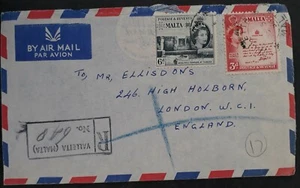 BY AIR MAIL
PAR AVION
POSTAGE & REVENUE
MALTA
6d
MALTA
3d
TO MR. ELLISDONS
246, HIGH HOLBORN,
LONDON. W.C.1
ENGLAND.
R
VALLETTA (MALTA)
No. 640
17